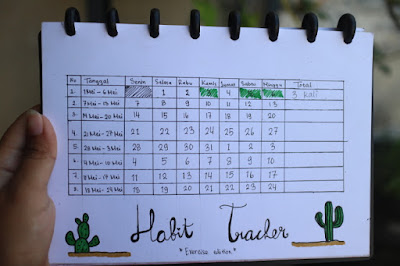 No Tanggal Senin Selasa Rabu Kamis Jumat Sabtu Minggu Total
1. 1 Mei - 6 Mei 1 2 4 3 kali
2. 7 Mei - 13 Mei 7 8 9 10 11 12 13
3. 14 Mei - 20 Mei 14 15 16 17 18 19 20
4. 21 Mei - 27 Mei 21 22 23 24 25 26 27
5. 28 Mei - 3 Mei 28 29 30 31 1 2 3
6. 4 Mei - 10 Mei 4 5 6 7 8 9 10
7. 11 Mei - 17 Mei 11 12 13 14 15 16 17
8. 18 Mei - 24 Mei 18 19 20 21 22 23 24
Habit Tracker
* Exercise edition *